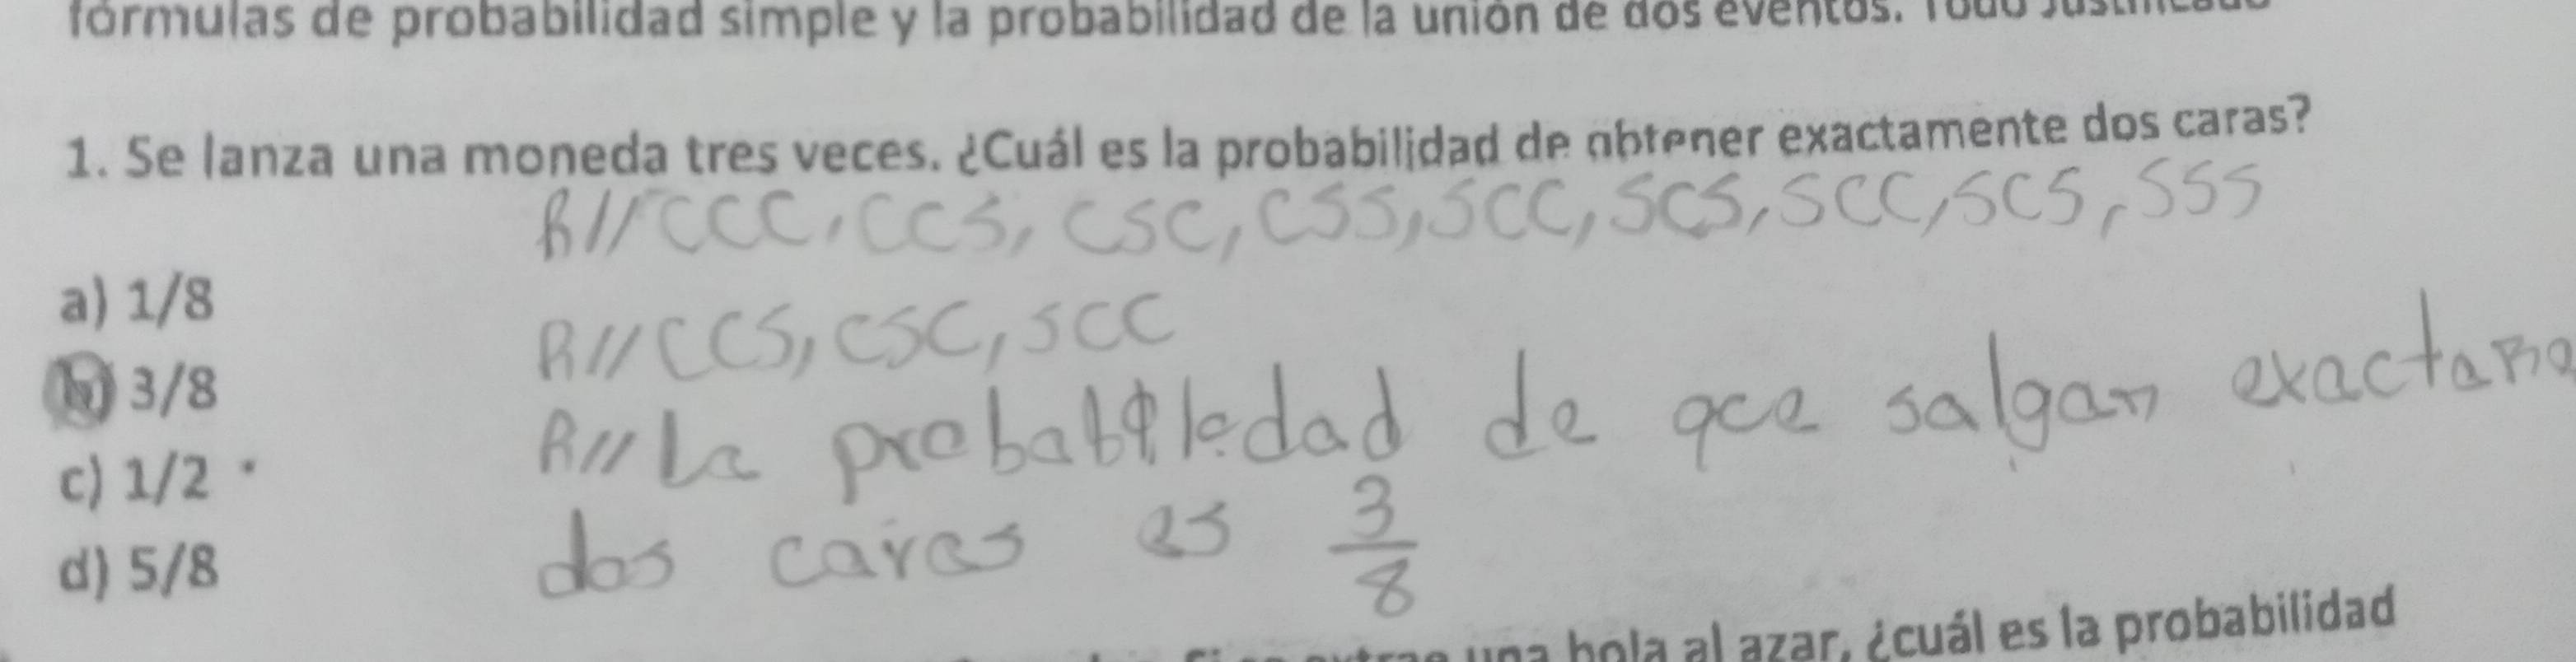 fórmulas de probabilidad simple y la probabilidad de la unión de dos eventos. Todo
1. Se lanza una moneda tres veces. ¿Cuál es la probabilidad de obtener exactamente dos caras?
R// CCC, CCS, CSC, CSS, SCC, SCS, SCC, SCS, SSS
a) 1/8
R// CCS, CSC, SCC
b) 3/8
R// La probabiledad de qce salgan exactame
c) 1/2
dos caras es 3/8
d) 5/8
una bola al azar, ¿cuál es la probabilidad